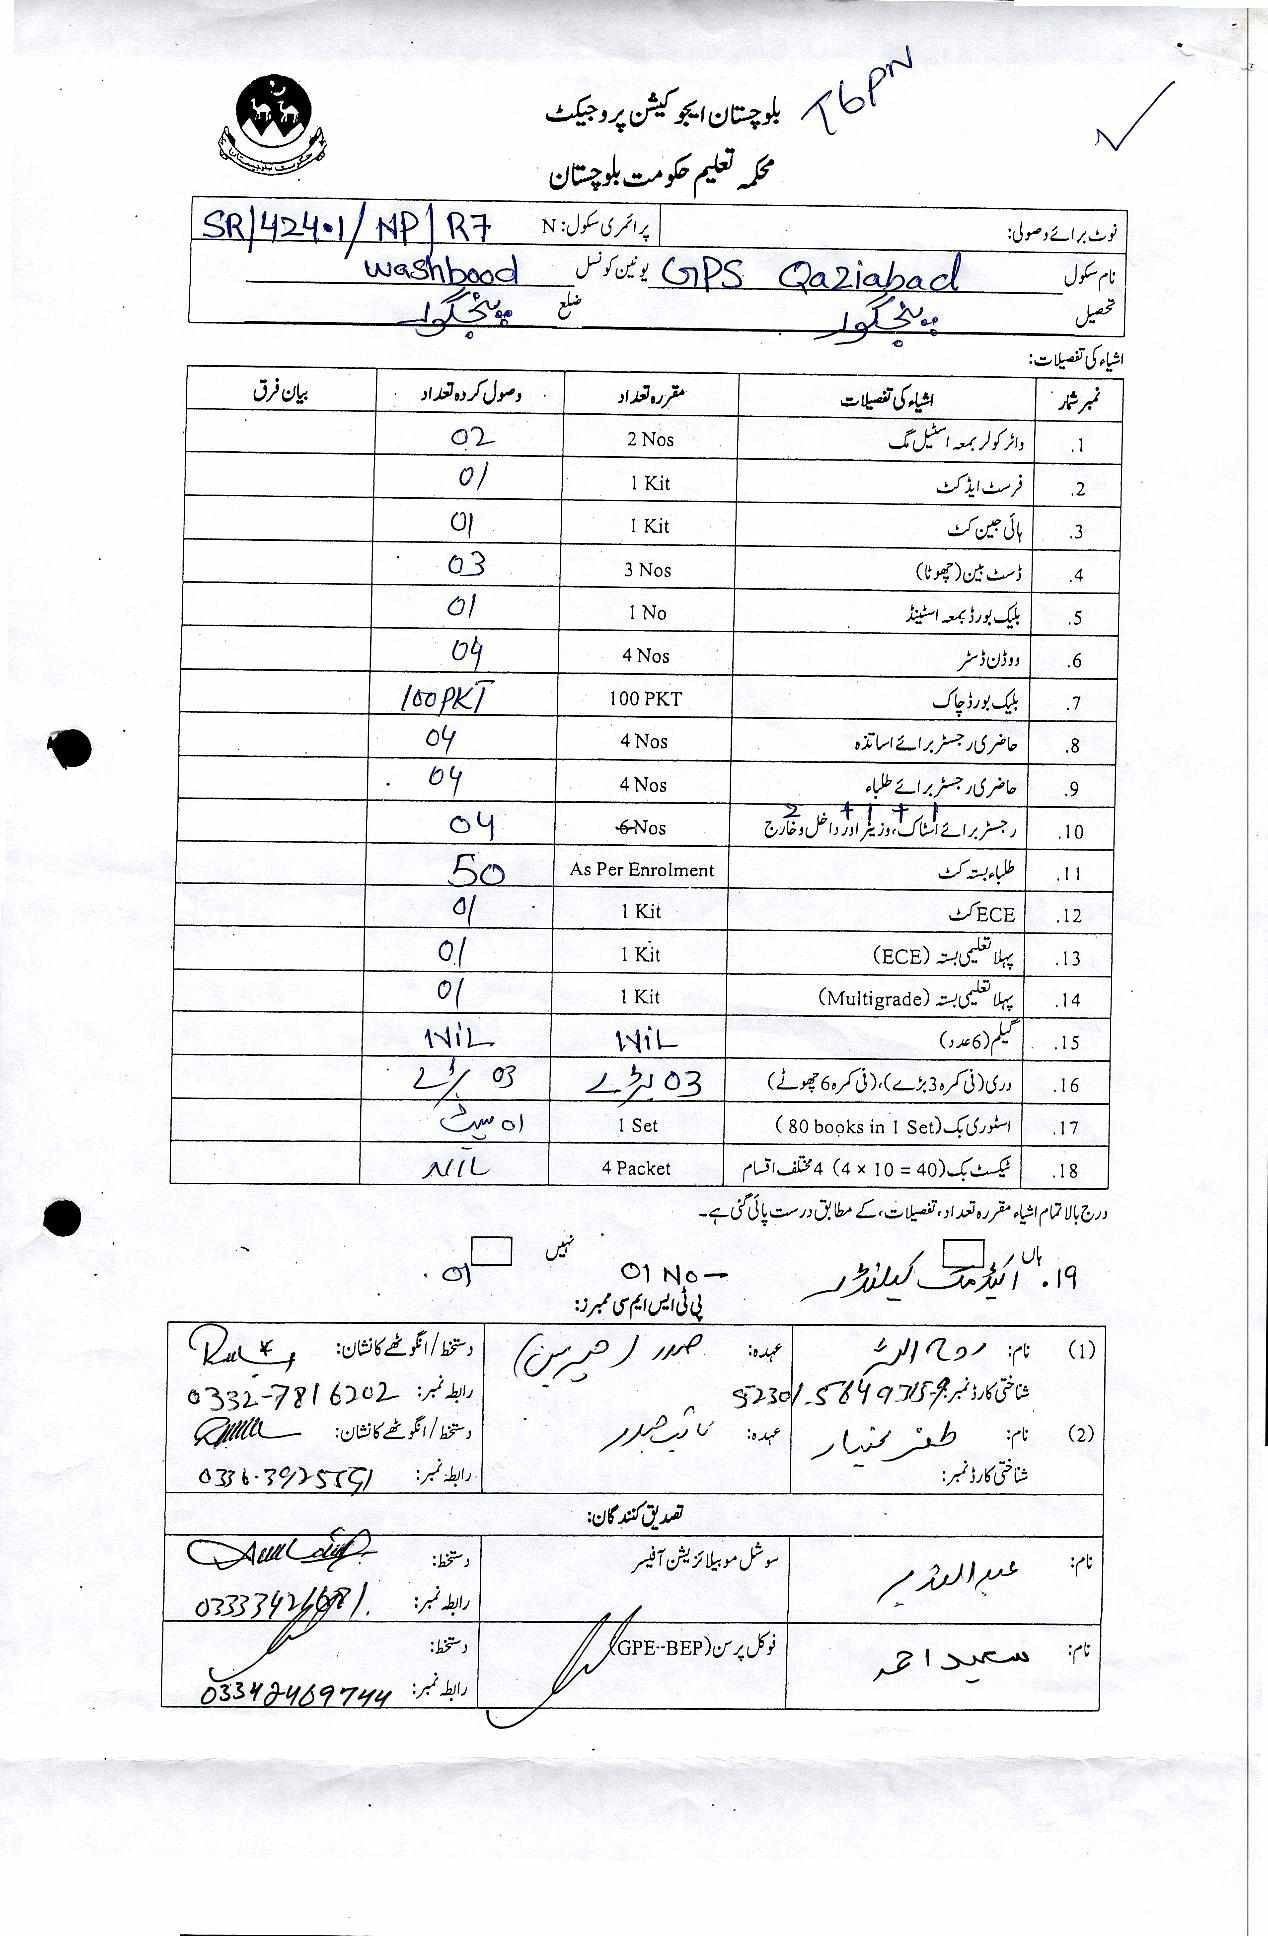 TGPN
بلوچستان ایجوکیشن پروجیکٹ
محکمہ تعلیم حکومت بلوچستان
حکومت بلوچستان
نوٹ برائے وصولی: پرائمری سکول: N SR/424.1/NP/R7
نام سکول GPS Qaziabad یونین کونسل washbood
تحصیل پنجگور ضلع پنجگور
اشیاء کی تفصیلات:
نمبر شمار اشیاء کی تفصیلات مقررہ تعداد وصول کردہ تعداد بیان فرق
1. واٹر کولر بمعہ اسٹیل مگ 2 Nos 02
2. فرسٹ ایڈ کٹ 1 Kit 01
3. ہائی جین کٹ 1 Kit 01
4. ڈسٹ بین (چھوٹا) 3 Nos 03
5. بلیک بورڈ بمعہ اسٹینڈ 1 No 01
6. ووڈن ڈسٹر 4 Nos 04
7. بلیک بورڈ چاک 100 PKT 100 PKT
8. حاضری رجسٹر برائے اساتذہ 4 Nos 04
9. حاضری رجسٹر برائے طلباء 4 Nos 04
1 + 1 + 2
10. رجسٹر برائے اسٹاک، وزیٹر اور داخل و خارج 6 Nos 04
11. طلباء بستہ کٹ As Per Enrolment 50
12. ECE کٹ 1 Kit 01
13. پہلا تعلیمی بستہ (ECE) 1 Kit 01
14. پہلا تعلیمی بستہ (Multigrade) 1 Kit 01
15. گیم (6 عدد) NiL NiL
16. دری (فی کمرہ 3 بڑے)، (فی کمرہ 6 چھوٹے) 03 بڑے 03 بڑے
17. اسٹوری بک (80 books in 1 Set) 1 Set 01 سیٹ
18. ٹیکسٹ بک (4 x 10 = 40) 4 مختلف اقسام 4 Packet NIL
درج بالا تمام اشیاء مقررہ تعداد، تفصیلات، کے مطابق درست پائی گئی ہے۔
ہاں نہیں
۱۹. اکیڈمک کیلنڈر 01 No — 01
پی ٹی ایس ایم سی ممبرز:
(1) نام: روح اللہ عہدہ: صدر (چیرمین) دستخط/انگوٹھے کا نشان:
شناختی کارڈ نمبر: 52301-5649715-9 رابطہ نمبر: 0332-7816202
(2) نام: ظفر بختیار عہدہ: نائب صدر دستخط/انگوٹھے کا نشان:
شناختی کارڈ نمبر: رابطہ نمبر: 0336-3925591
تصدیق کنندگان:
نام: سوشل موبیلائزیشن آفیسر دستخط:
رابطہ نمبر: 03333421681
نام: سعید احمد فوکل پرسن (GPE--BEP) دستخط:
رابطہ نمبر: 03342469744